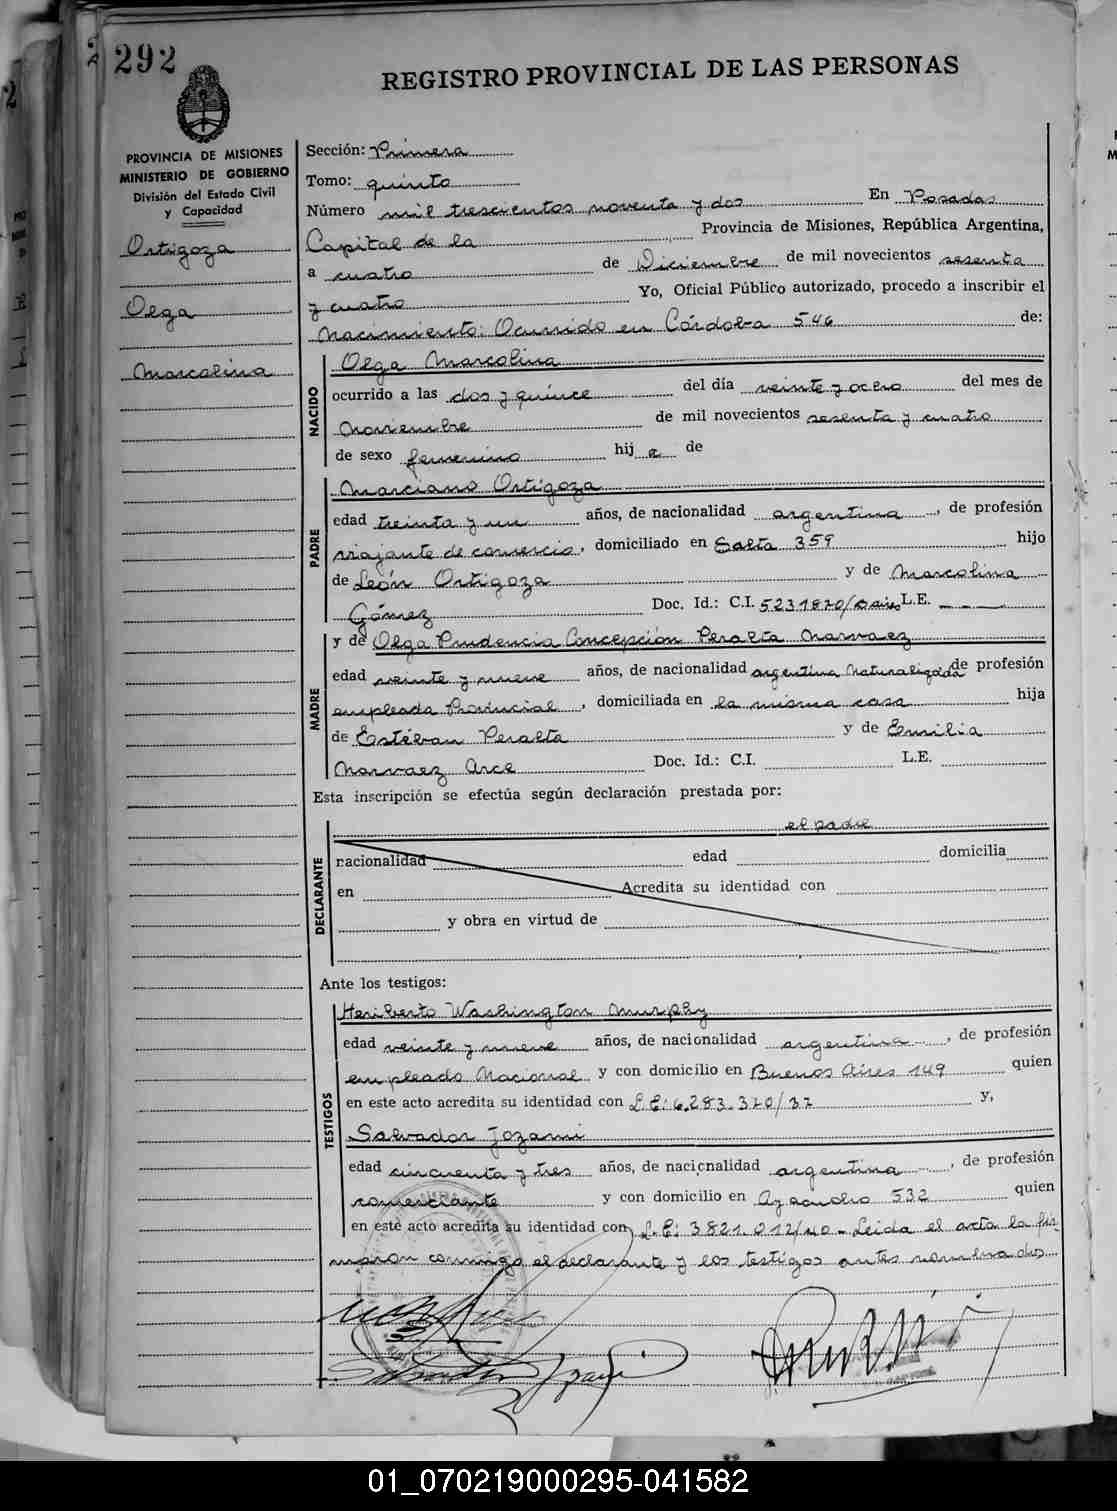 292
REGISTRO PROVINCIAL DE LAS PERSONAS
PROVINCIA DE MISIONES
MINISTERIO DE GOBIERNO
División del Estado Civil
y Capacidad
Ortigoza
Olga
Marcolina
Sección: Primera
Tomo: quinto
Número mil trescientos noventa y dos En Posadas
Capital de la Provincia de Misiones, República Argentina,
a cuatro de Diciembre de mil novecientos sesenta
y cuatro Yo, Oficial Público autorizado, procedo a inscribir el
Nacimiento: Ocurrido en Córdoba 546 de:
NACIDO
Olga Marcolina
ocurrido a las dos y quince del día veinte y ocho del mes de
Noviembre de mil novecientos sesenta y cuatro
de sexo femenino hij a de
PADRE
Marciano Ortigoza
edad treinta y un años, de nacionalidad argentina, de profesión
viajante de comercio, domiciliado en Salta 359 hijo
de León Ortigoza y de Marcolina
Gómez Doc. Id.: C.I. 5231870/Baires L.E. ----
MADRE
y de Olga Prudencia Concepción Peralta Narvaez
edad veinte y nueve años, de nacionalidad argentina Naturalizada de profesión
empleada Provincial, domiciliada en la misma casa hija
de Estéban Peralta y de Emilia
Narvaez Arce Doc. Id.: C.I. L.E.
Esta inscripción se efectúa según declaración prestada por:
DECLARANTE
el padre
nacionalidad edad domicilia
en Acredita su identidad con
y obra en virtud de
Ante los testigos:
TESTIGOS
Heriberto Washington Murphy
edad veinte y nueve años, de nacionalidad argentina, de profesión
empleado Nacional y con domicilio en Buenos Aires 149 quien
en este acto acredita su identidad con L.E: 6.283.370/37 y,
Salvador Jozami
edad cincuenta y tres años, de nacionalidad argentina, de profesión
comerciante y con domicilio en Ayacucho 532 quien
en este acto acredita su identidad con L.E: 3821.012/40 - Leida el acta la fir-
maron conmigo el declarante y los testigos antes nombrados
01_070219000295-041582